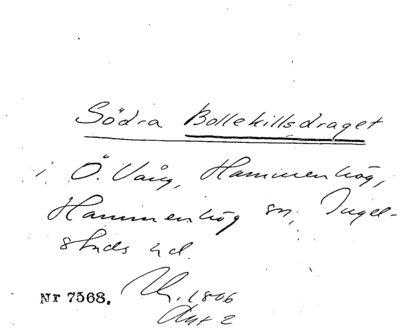 Södra Bollekillsdraget
i Ö. Vång, Hammenhög,
Hammenhög sn, Ingel-
stads hd.
Nr 7568. 1806
Akt 2